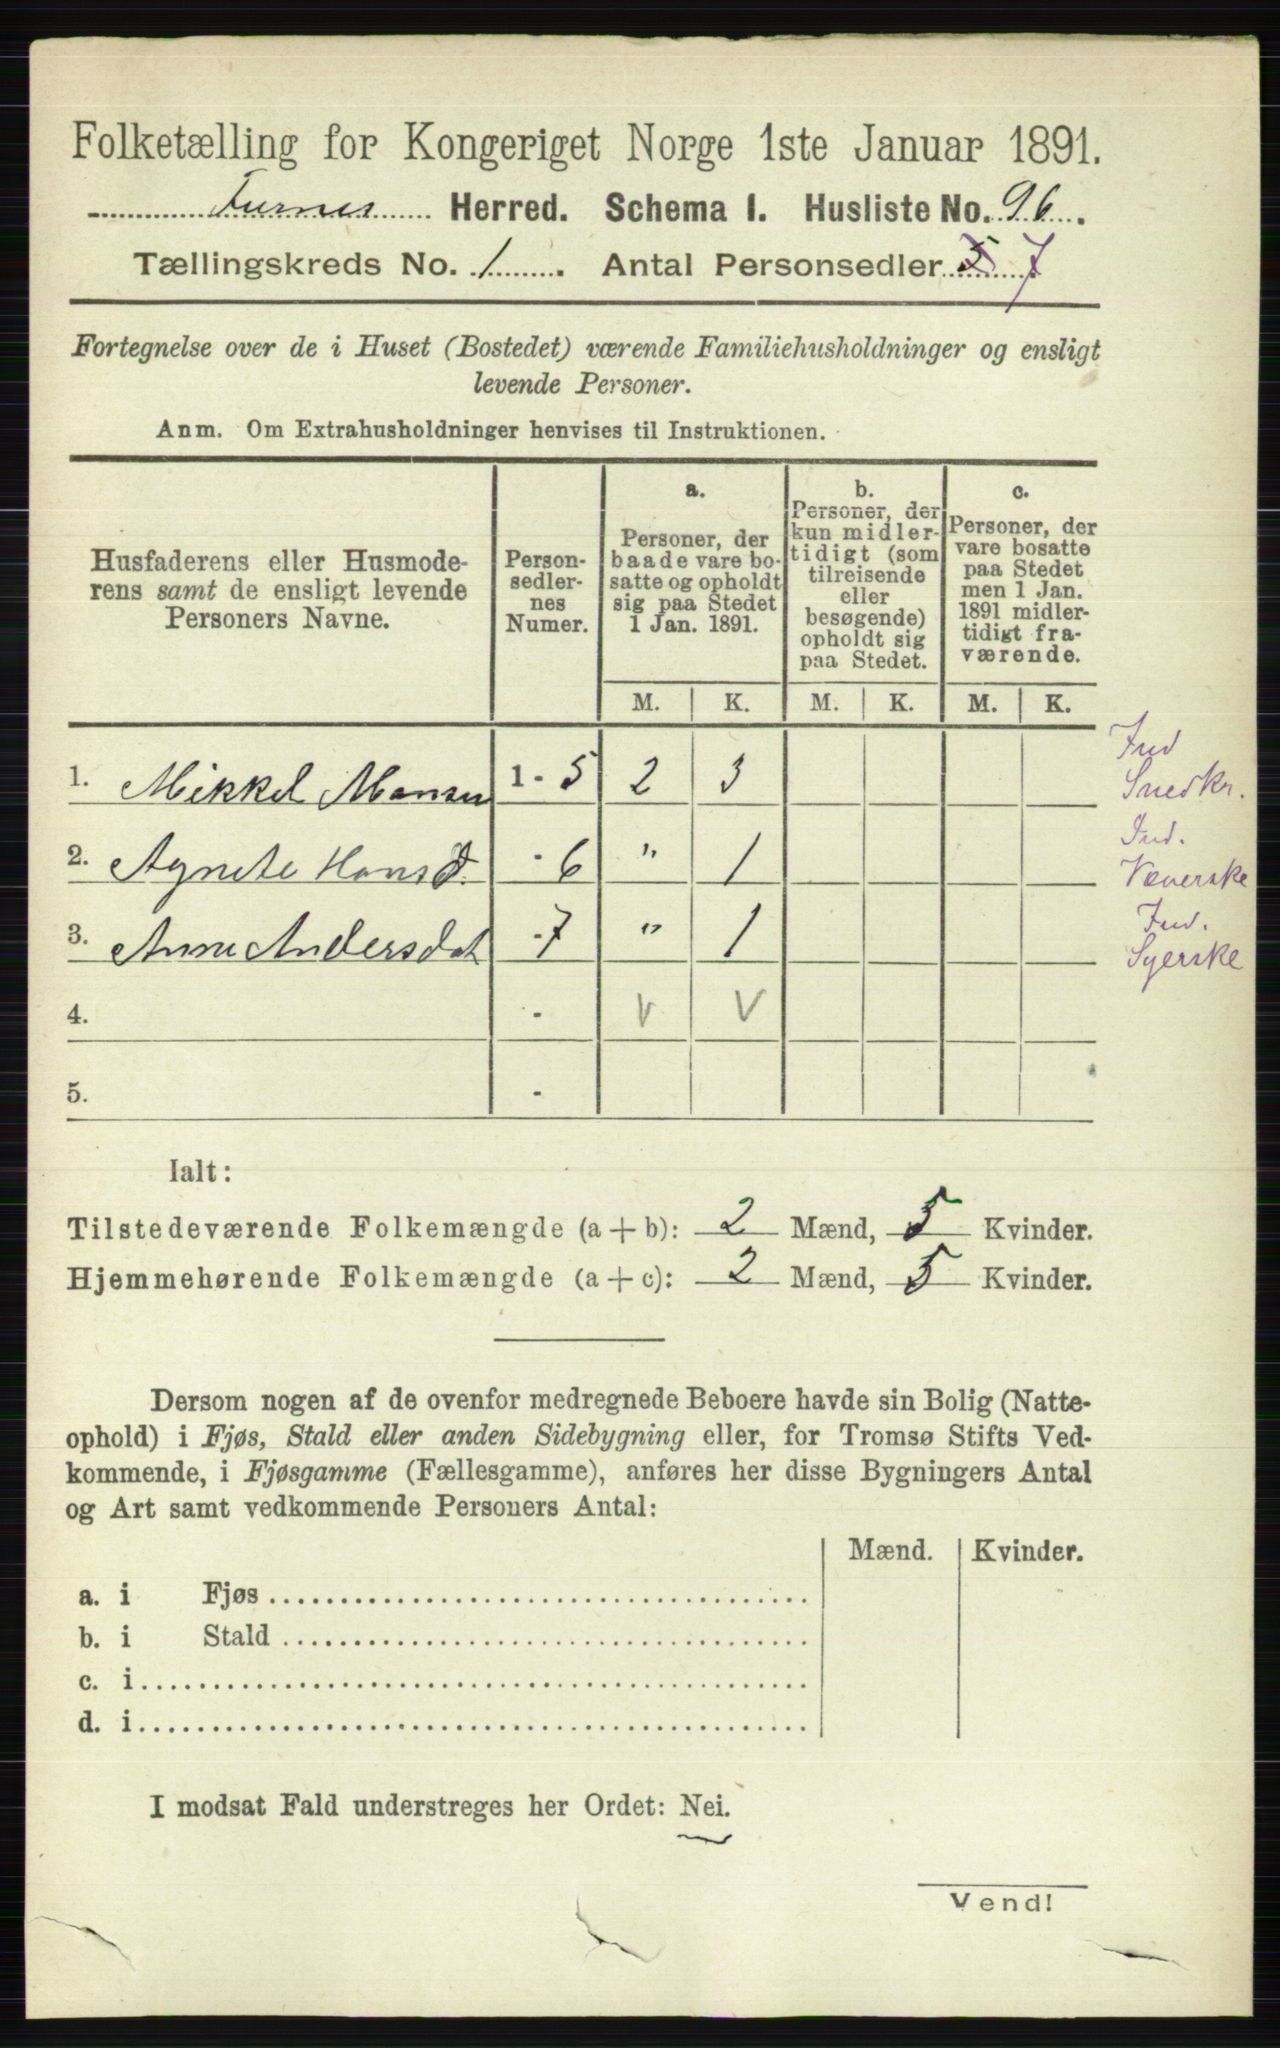 Folketælling for Kongeriget Norge 1ste Januar 1891.
Furnes Herred. Schema I. Husliste No. 96.
Tællingskreds No. 1. Antal Personsedler 5 7
Fortegnelse over de i Huset (Bostedet) værende Familiehusholdninger og ensligt
levende Personer.
Anm. Om Extrahusholdninger henvises til Instruktionen.
Husfaderens eller Husmode-
rens samt de ensligt levende
Personers Navne.
Person-
sedler-
nes
Numer.
a.
Personer, der
baade vare bo-
satte og opholdt
sig paa Stedet
1 Jan. 1891.
b.
Personer, der
kun midler-
tidigt (som
tilreisende
eller
besøgende)
opholdt sig
paa Stedet.
c.
Personer, der
vare bosatte
paa Stedet
men 1 Jan.
1891 midler-
tidigt fra-
værende.
M. K. M. K. M. K.
Ind
1. Mikkel Hansen 1 - 5 2 3 Snedkr.
Ind.
2. Agnete Hansd. - 6 " 1 Væverske
Ind.
3. Anne Andersdat - 7 " 1 Syerske
4. - V V
5. -
Ialt:
Tilstedeværende Folkemængde (a + b): 2 Mænd, 5 Kvinder.
Hjemmehørende Folkemængde (a + c): 2 Mænd, 5 Kvinder.
Dersom nogen af de ovenfor medregnede Beboere havde sin Bolig (Natte-
ophold) i Fjøs, Stald eller anden Sidebygning eller, for Tromsø Stifts Ved-
kommende, i Fjøsgamme (Fællesgamme), anføres her disse Bygningers Antal
og Art samt vedkommende Personers Antal:
Mænd. Kvinder.
a. i Fjøs
b. i Stald
c. i
d. i
I modsat Fald understreges her Ordet: Nei.
Vend!